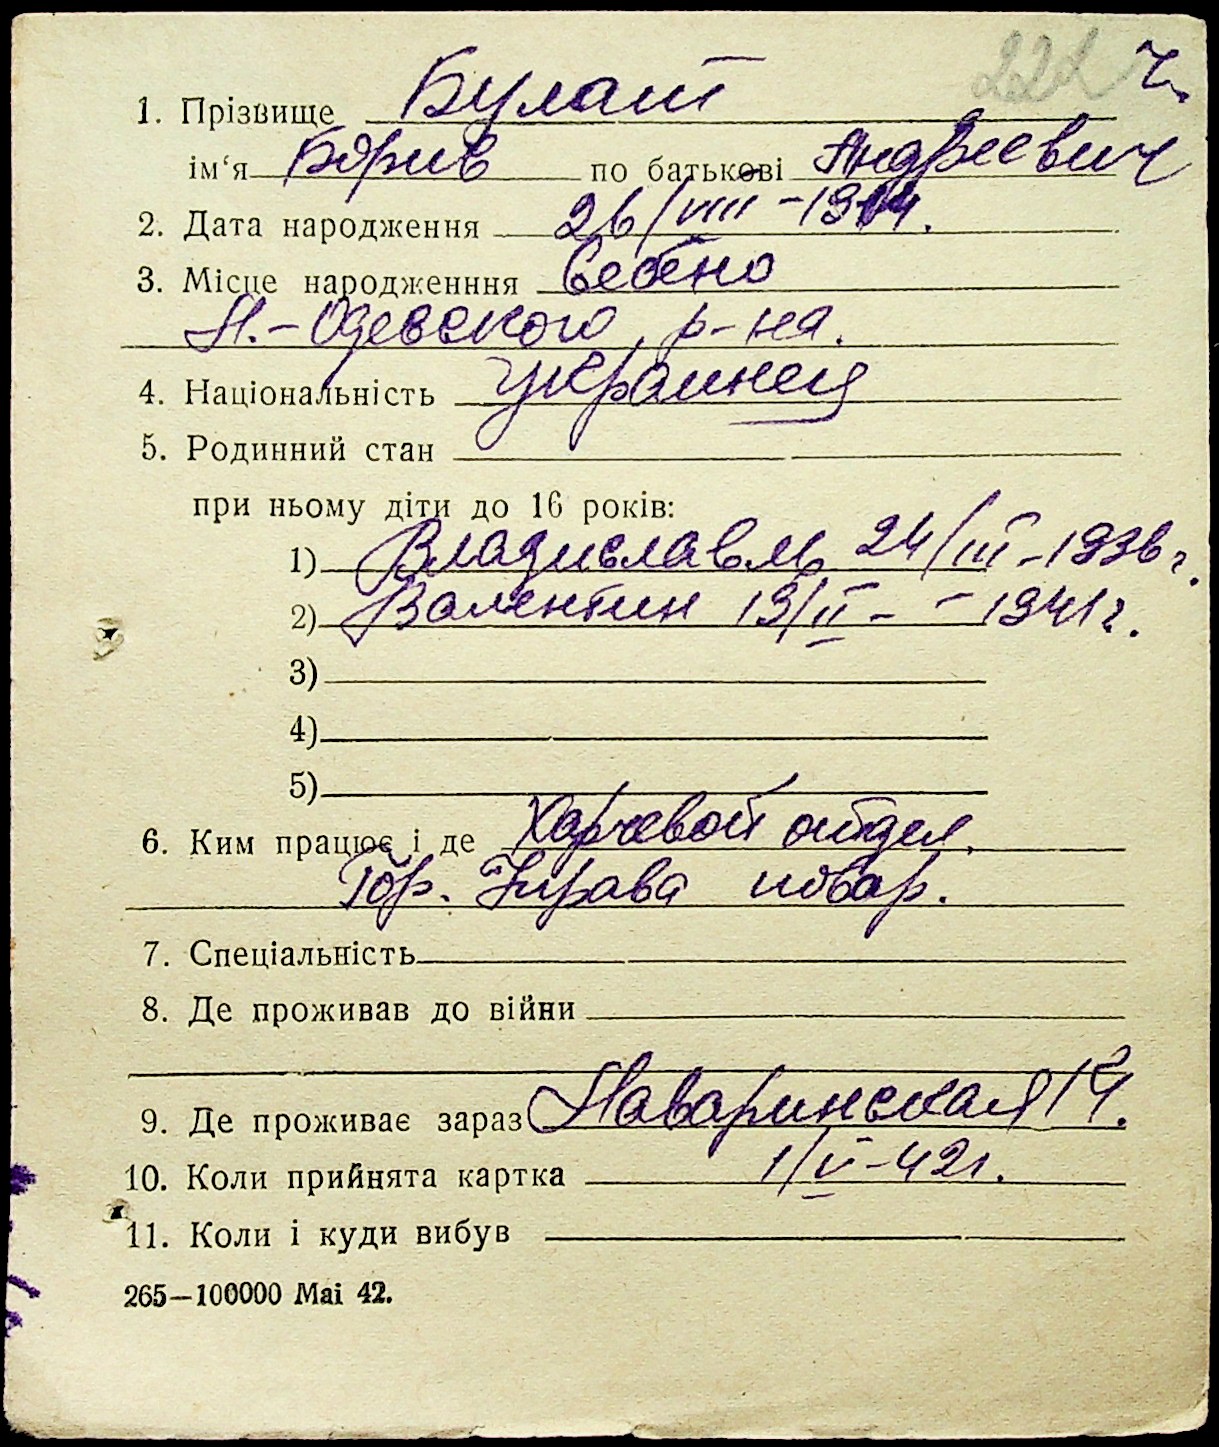 222 ч.
1. Прізвище Булат
ім‘я Борис по батькові Андреевич
2. Дата народження 26/VIII – 1914.
3. Місце народженння Себено
Н.-Одесского р-на.
4. Національність украинец
5. Родинний стан
при ньому діти до 16 років:
1) Владиславль 24/III – 1936 г.
2) Валентин 19/II – – 1941 г.
3)
4)
5)
6. Ким працює і де Харчевой отдел.
Гор. Управа повар.
7. Спеціальність
8. Де проживав до війни
9. Де проживає зараз Наваринская 14.
10. Коли прийнята картка 1/VI – 42 г.
11. Коли і куди вибув
265—100000 Mai 42.